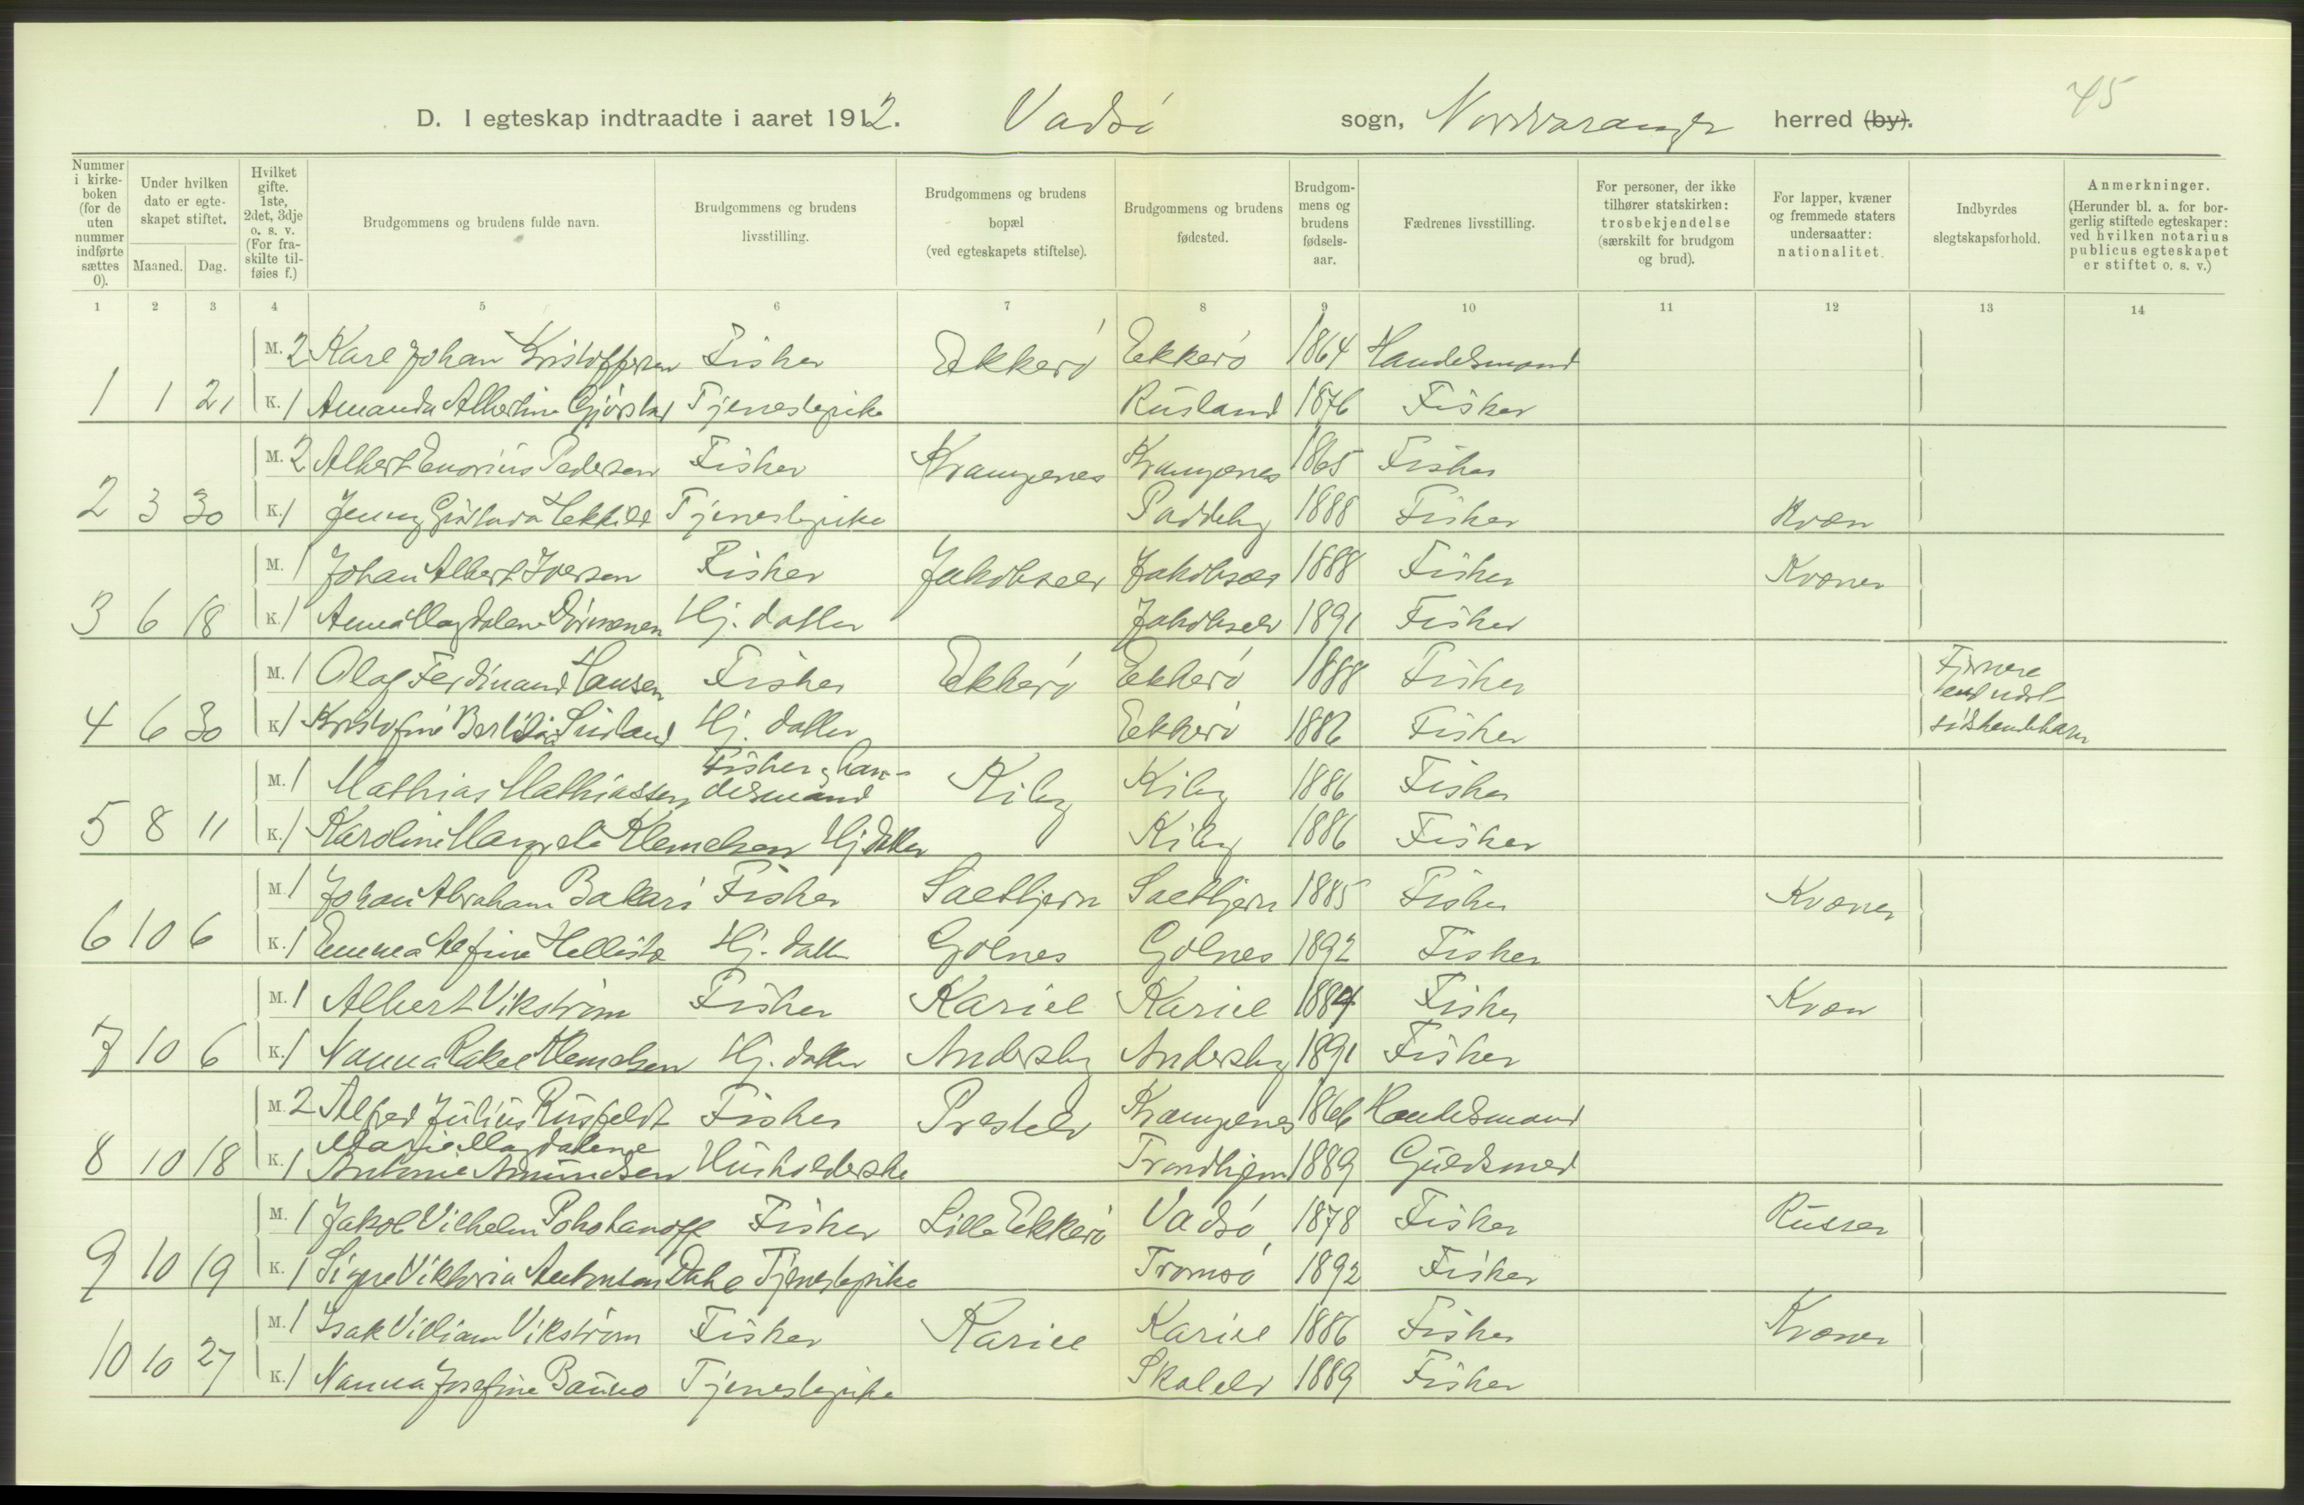 45
D. I egteskap indtraadte i aaret 1912. Vadsö sogn, Nordvaranger herred (by).
Nummer i kirkeboken (for de uten nummer indførte sættes 0).
Under hvilken dato er egteskapet stiftet.
Maaned. Dag.
Hvilket gifte. 1ste, 2det, 3dje o. s. v. (For fraskilte tilføies f.)
Brudgommens og brudens fulde navn.
Brudgommens og brudens livsstilling.
Brudgommens og brudens bopæl (ved egteskapets stiftelse).
Brudgommens og brudens fødested.
Brudgommens og brudens fødselsaar.
Fædrenes livsstilling.
For personer, der ikke tilhører statskirken: trosbekjendelse (særskilt for brudgom og brud).
For lapper, kvæner og fremmede staters undersaatter: nationalitet.
Indbyrdes slegtskapsforhold.
Anmerkninger. (Herunder bl. a. for borgerlig stiftede egteskaper: ved hvilken notarius publicus egteskapet er stiftet o. s. v.)
1 2 3 4 5 6 7 8 9 10 11 12 13 14
M. 2 Karl Johan Kristoffersen Fisker Ekkerö Ekkerö 1864 Handelsmand
1 1 21 K. 1 Amanda Albertine Tjenestepike Rusland 1876 Fisker
M. 2 Albert Pedersen Fisker Krampenes Krampenes 1865 Fisker
2 3 30 K. 1 Jenny Tjenestepike Paddeby 1888 Fisker Kvæn
M. 1 Johan Albert Iversen Fisker Jakobselv Jakobselv 1888 Fisker Kvæner
3 6 18 K. 1 Anna Magdalene Hj. datter Jakobselv 1891 Fisker
M. 1 Olaf Ferdinand Hansen Fisker Ekkerö Ekkerö 1888 Fisker Fjernere end
4 6 30 K. 1 Kristofine Hj. datter Ekkerö 1886 Fisker södskendebarn
M. 1 Mathias Mathiassen Fisker & handelsmand Kiby Kiby 1886 Fisker
5 8 11 K. 1 Karoline Margreta Klemetsen Hj datter Kiby 1886 Fisker
M. 1 Johan Abraham Bakari Fisker Saltbjern Saltbjern 1885 Fisker Kvæner
6 10 6 K. 1 Emma Alfine Hj. datter Golnes Golnes 1892 Fisker
M. 1 Albert Vikström Fisker Kariel Kariel 1884 Fisker Kvæn
7 10 6 K. 1 Nanna Rakel Klemetsen Hj. datter Andersby Andersby 1891 Fisker
M. 2 Alfred Julius Rusfeldt Fisker Prestelv Krampenes 1866 Handelsmand
Marie Magdalene
8 10 18 K. 1 Antonie Amundsen Husholderske Trondhjem 1889 Guldsmed
M. 1 Jakob Vilhelm Pohohanoff Fisker Lille Ekkerö Vadsö 1878 Fisker Russer
9 10 19 K. 1 Signe Viktoria Antonsen Dahl Tjenestepike Tromsö 1892 Fisker
M. 1 Isak Villiam Vikström Fisker Kariel Kariel 1886 Fisker Kvæner
10 10 27 K. 1 Nanna Josefine Bauno Tjenestepike Skalelv 1889 Fisker